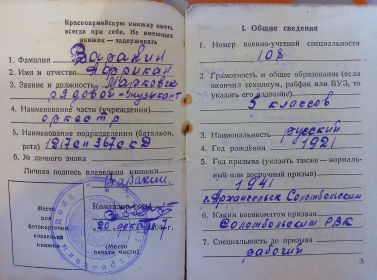 Красноармейскую книжку иметь
всегда при себе. Не имеющих
книжек — задерживать
1. Фамилия Вагакин
2. Имя и отчество Африкан
3. Звание и должность Марковс
рядовой-музыкант
4. Наименование части (учреждения)
оркестр
5. Наименование подразделения (батальон,
рота) 1217 сп 367 с.д
6. № личного знака
Личная подпись владельца книжки
Место
для
фотокарточки
владельца
книжки
Командир
20 декабря
(Место
печати)
I. Общие сведения
1. Номер военно-учетной специальности
108
2. Грамотность и общее образование (если
окончил техникум, рабфак или ВУЗ, то
указать его название).
5 классов
3. Национальность русский
4. Год рождения 1921
5. Год призыва (указать также — нормаль-
ный или досрочный призыв)
1941
г. Архангельск Соломбольским
6. Каким военкоматом призван
Соломбольским РВК
7. Специальность до призыва
рабочий
3